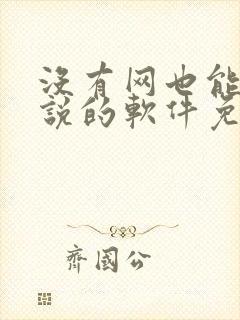 没有网也能
說的軟件免
齊國公